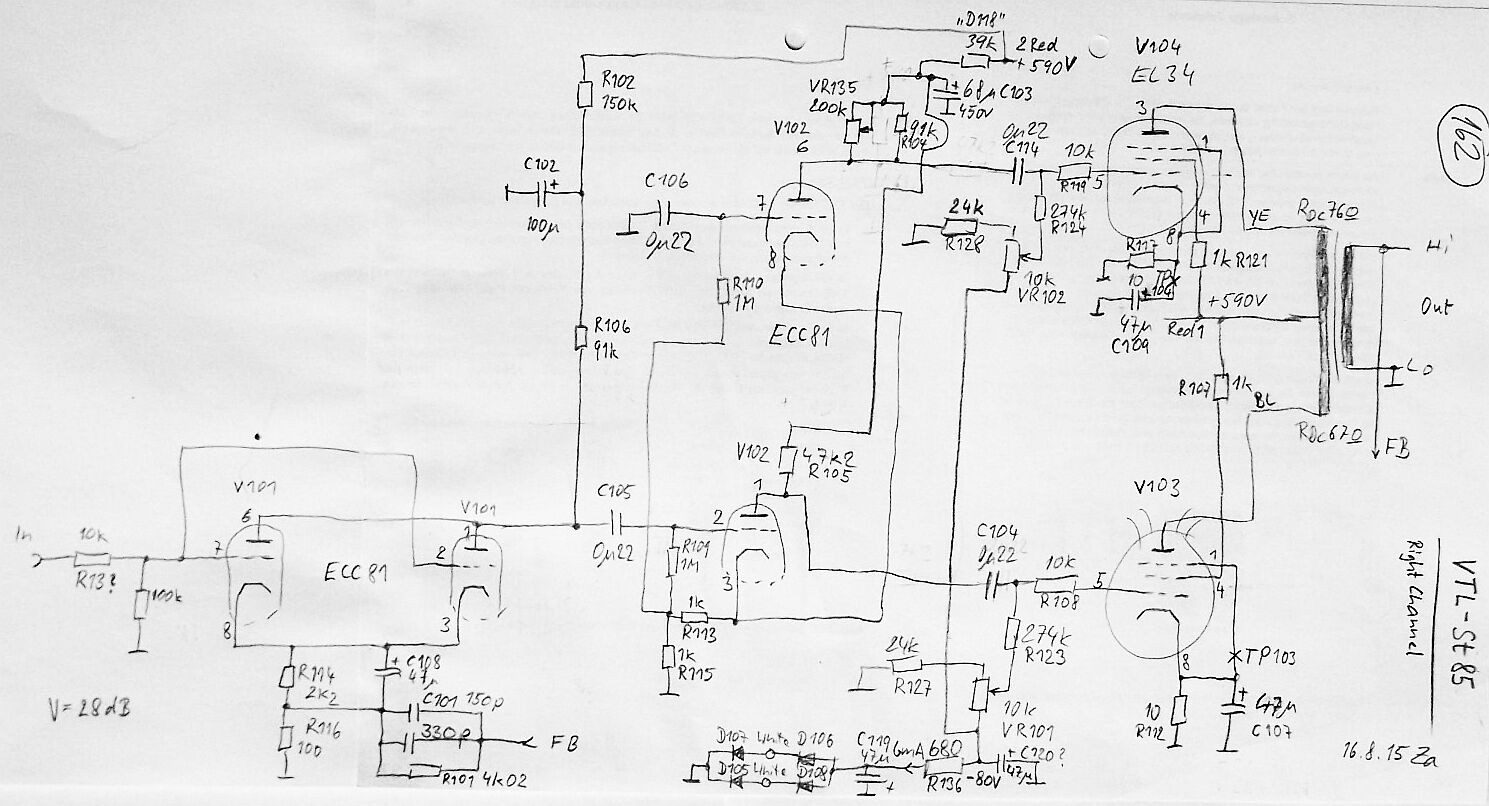 "D118"
39k
2 Red
+590V
V104
EL34
162
R102
150k
VR135
200k
68µ C103
450V
V102
6
91k
R104
0µ22
C114
10k
R119
5
3
1
4
8
C102
+
100µ
C106
0µ22
7
8
24k
R128
274k
R124
10k
VR102
R117
10
TP
104
47µ
C109
1k R121
+590V
Red1
YE
RDC76Ω
Hi
Out
Lo
FB
R110
1M
ECC81
R106
91k
R107
1k
BL
RDC67Ω
V102
47k2
R105
V101
6
V101
1
C105
0µ22
2
1
3
V103
In
10k
7
ECC81
2
R109
1M
C104
0µ22
10k
R108
5
1
4
8
100k
8
3
1k
R113
1k
R115
274k
R123
TP103
R114
2k2
+
C108
47µ
24k
R127
10
R112
+
47µ
C107
V=28dB
C101 150p
R116
100
330p
FB
R101 4k02
10k
VR101
D107
White
D106
D105
White
D108
C119
47µ
+
6mA
680
R136
-80V
+ C120?
47µ
VTL-St 85
Right Channel
16.8.15 Za